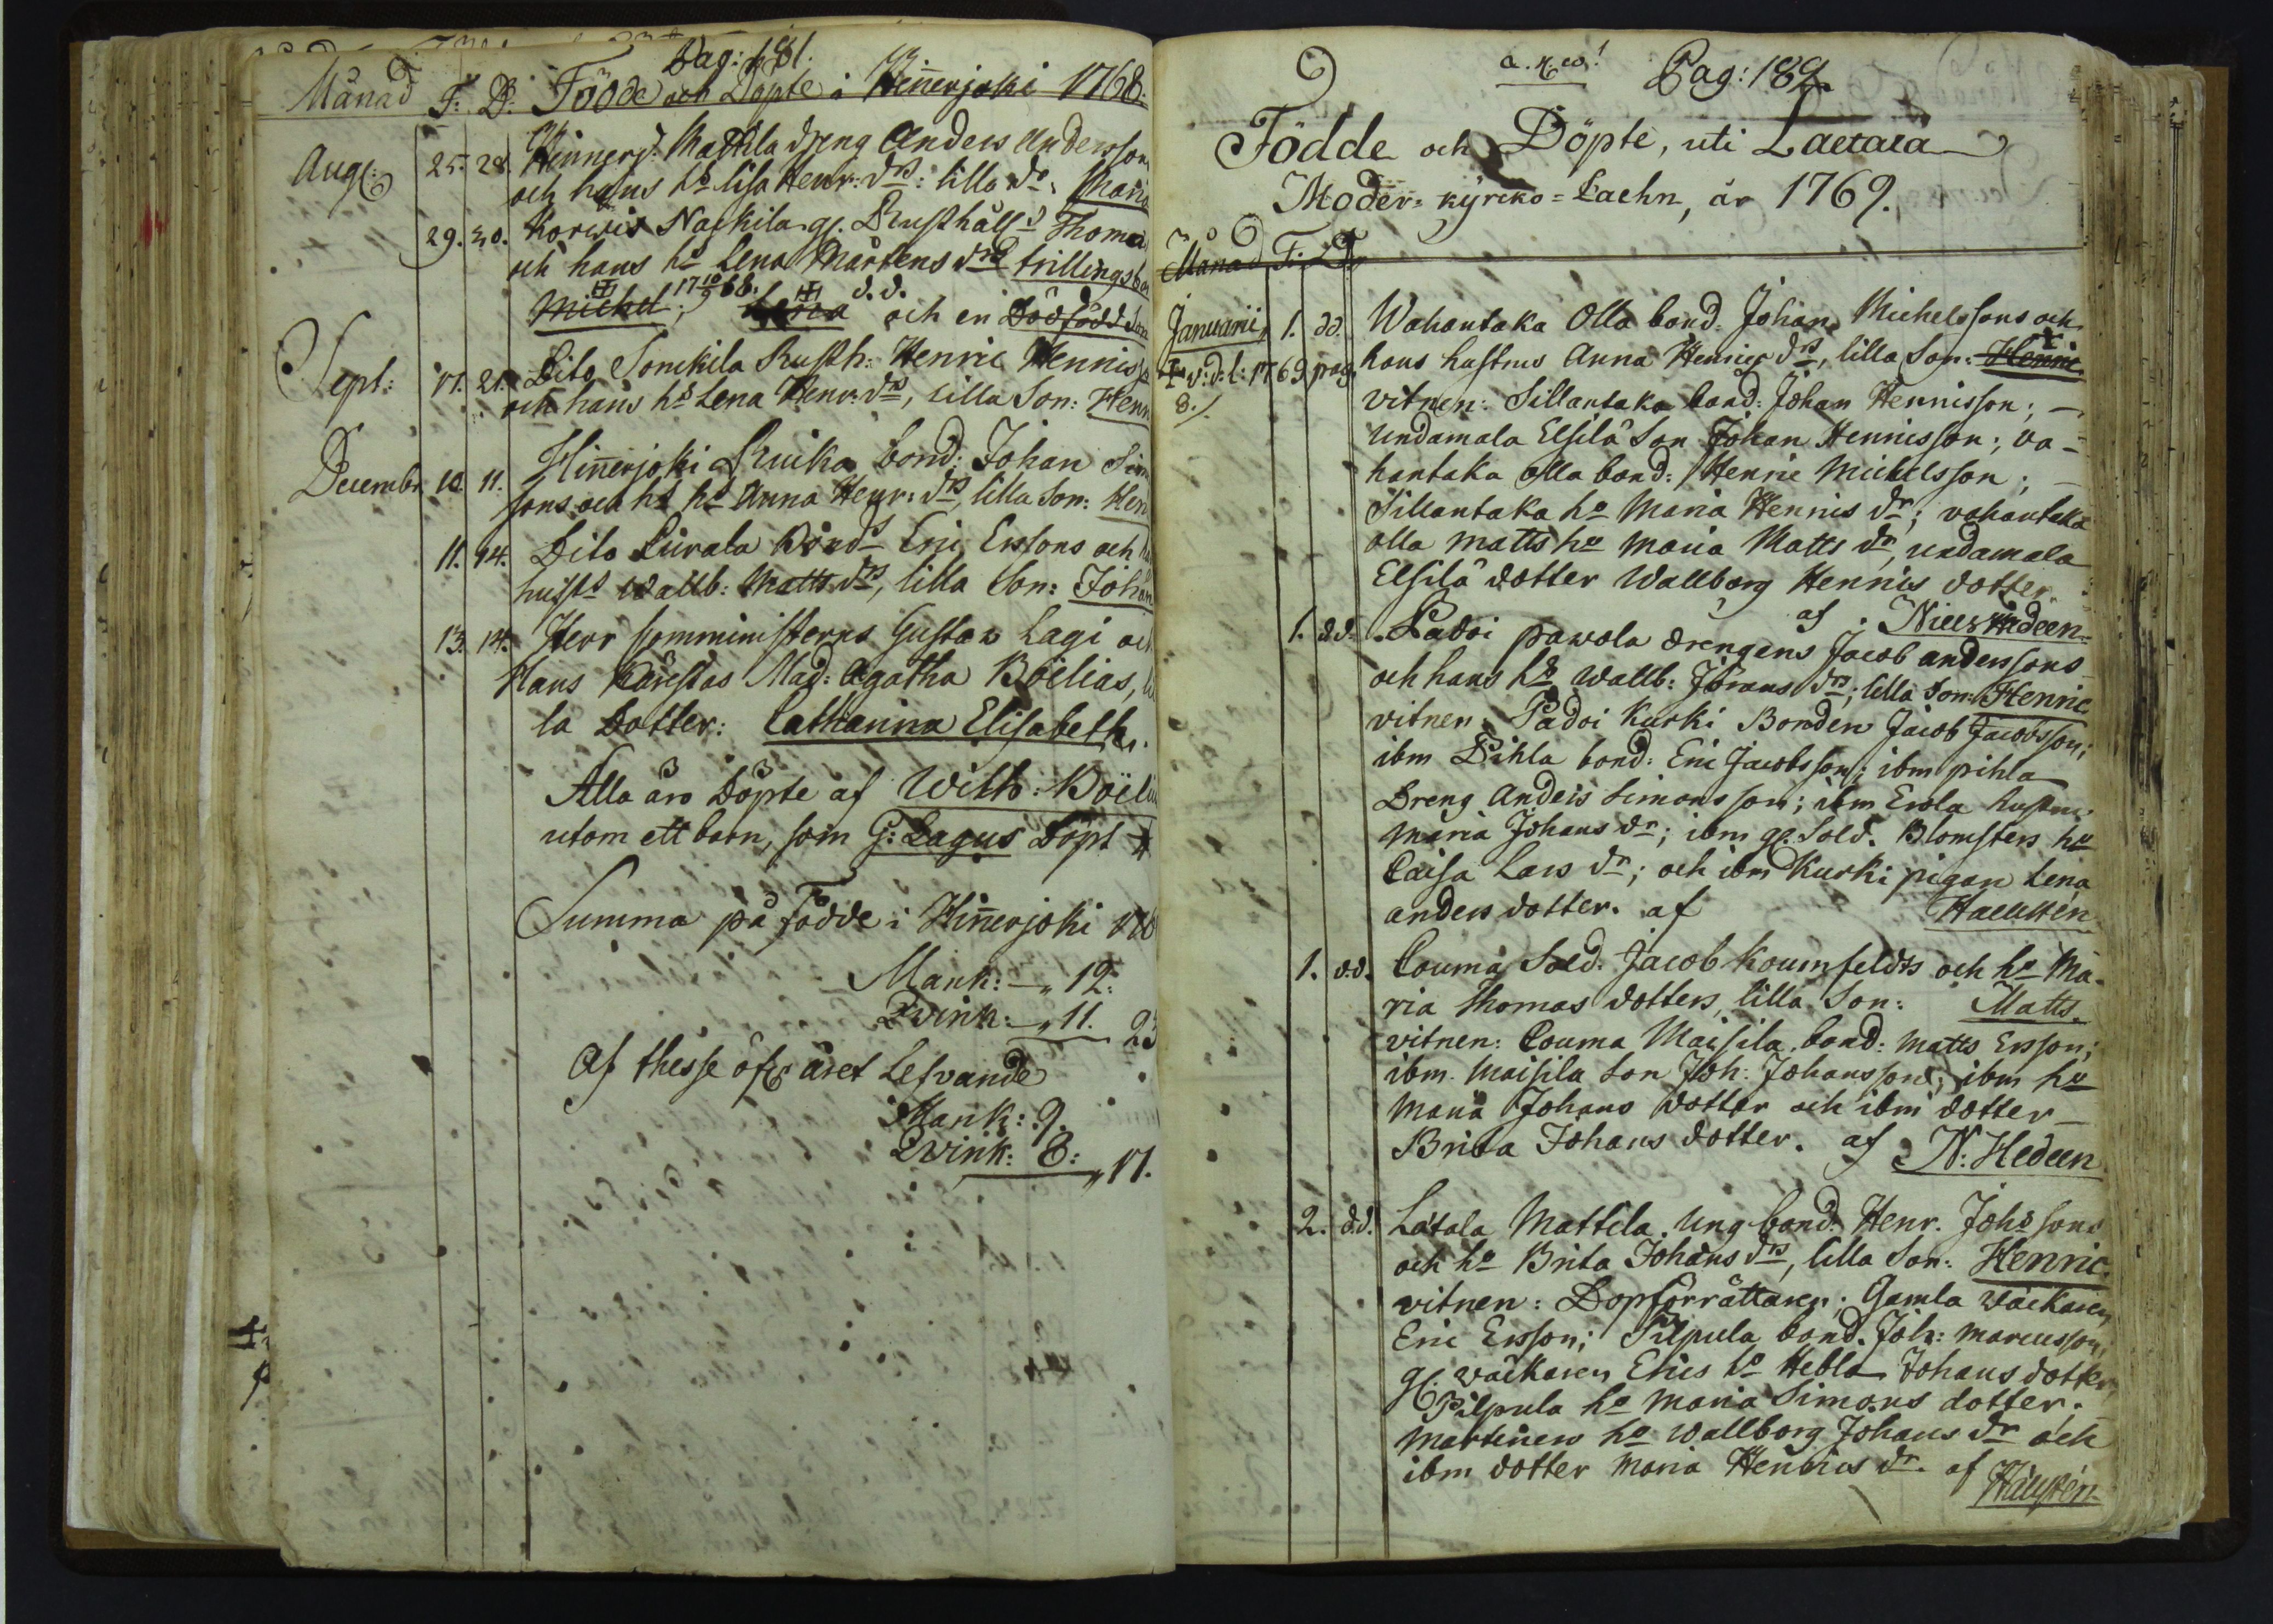 Pag: 181.
Månad F: D: Födde och Döpte i Hinnerjoki 1768.
Aug: 25. 28. Hinnerj: Mattila dreng Anders Andersson
och hans ho Lisa Henr: drs: lilla dr. Maria
29. 30. Korwis Nackila gl. Rusthålls Thomas
och hans ho Lena Mårtens drs trillingsb
Michel; 17 68. Lena d.d. och en Dödfödd
Sept: 17. 21. Dito Tomckila Rusth: Henric Henris
och hans hs Lena Henr: drs, lilla Son: Hen
Decembr. 10. 11. Hinnerjoki Ruika bond: Johan Sim
sons och hs ho Anna Henr: drs, lilla Son: Hen
11. 14. Dito Liivala Bonds Eric Erssons och
hust: Wallb: Matts drs, lilla Son: Johan
13. 14. Herr Comministerns Gustav Lagi och
Hans Kärestas Mad: Agatha Boëlias,
la Dotter: Catharina Elisabeth.
Alla äro Döpte af Wilh: Boëli
utom ett barn, som G: Lagus Döpt
Summa på Födde i Hinnerjoki 176
Mank: 12.
Qvink: 11. 23
Af thesse öfr året Lefvande
Mank: 9.
Qvink: 8: 17.
a. x. w! Pag: 182.
Födde och Döpte, uti Laetara
Moder-kyrcko-Laehn, år 1769.
Månad F: D:
Januarii 1. dd. Wahantaka Olla bond: Johan Michelssons och
v: d. l: 1769 pag. hans hustrus Anna Henrics drs, lilla Son: Henric
8. vitnen: Sillantaka bond: Johan Henrisson;
Undamala Elsilä Son Johan Henrisson; va-
hantaka Olla bond: Henric Michelsson;
Sillantaka ho Maria Henris dr; vahantaka
Olla Matts ho Maria Matts dr, undamala
Elsilä dotter Wallborg Henris dotter
af Niels Hedeen
1. d.d. Padoi pawola drengens Jacob Anderssons
och hans ho Wallb: Jörans drs; lilla Son: Henric
vitnen: Padoi Kurki Bonden Jacob Jacobsson;
ibm Pihla bond: Eric Jacobsson; ibm pihla
Dreng Anders Simonsson; ibm Erola hustru
Maria Johans dr; ibm gl. Sold. Blomsters ho
Caisa Lars dr; och ibm Kurki pigan Lena
Anders dotter. af Haelstén
1. d.d. Couma Sold. Jacob Koumfeldts och ho Ma-
ria Thomas dotters, lilla Son: Matts.
vitnen: Couma Maisila bond: Matts Ersson;
ibm. Maisila Son Joh: Johansson; ibm ho
Maria Johans dotter och ibm dotter
Brita Johans dotter. af N: Hedeen
2. d.d. Lätala Mattila Ung bond. Henr. Johs sons
och ho Brita Johans drs, lilla Son: Henric.
vitnen: Dopförrättaren; Gamla Wäckaren
Eric Ersson; Pilpula bond. Joh: Marcusson,
gl. Wäckaren Erics ho Hebla Johans dotter
Pilpula ho Maria Simons dotter.
Martinen ho Wallborg Johans dr och
ibm dotter Maria Henrics dr. af Hälstén